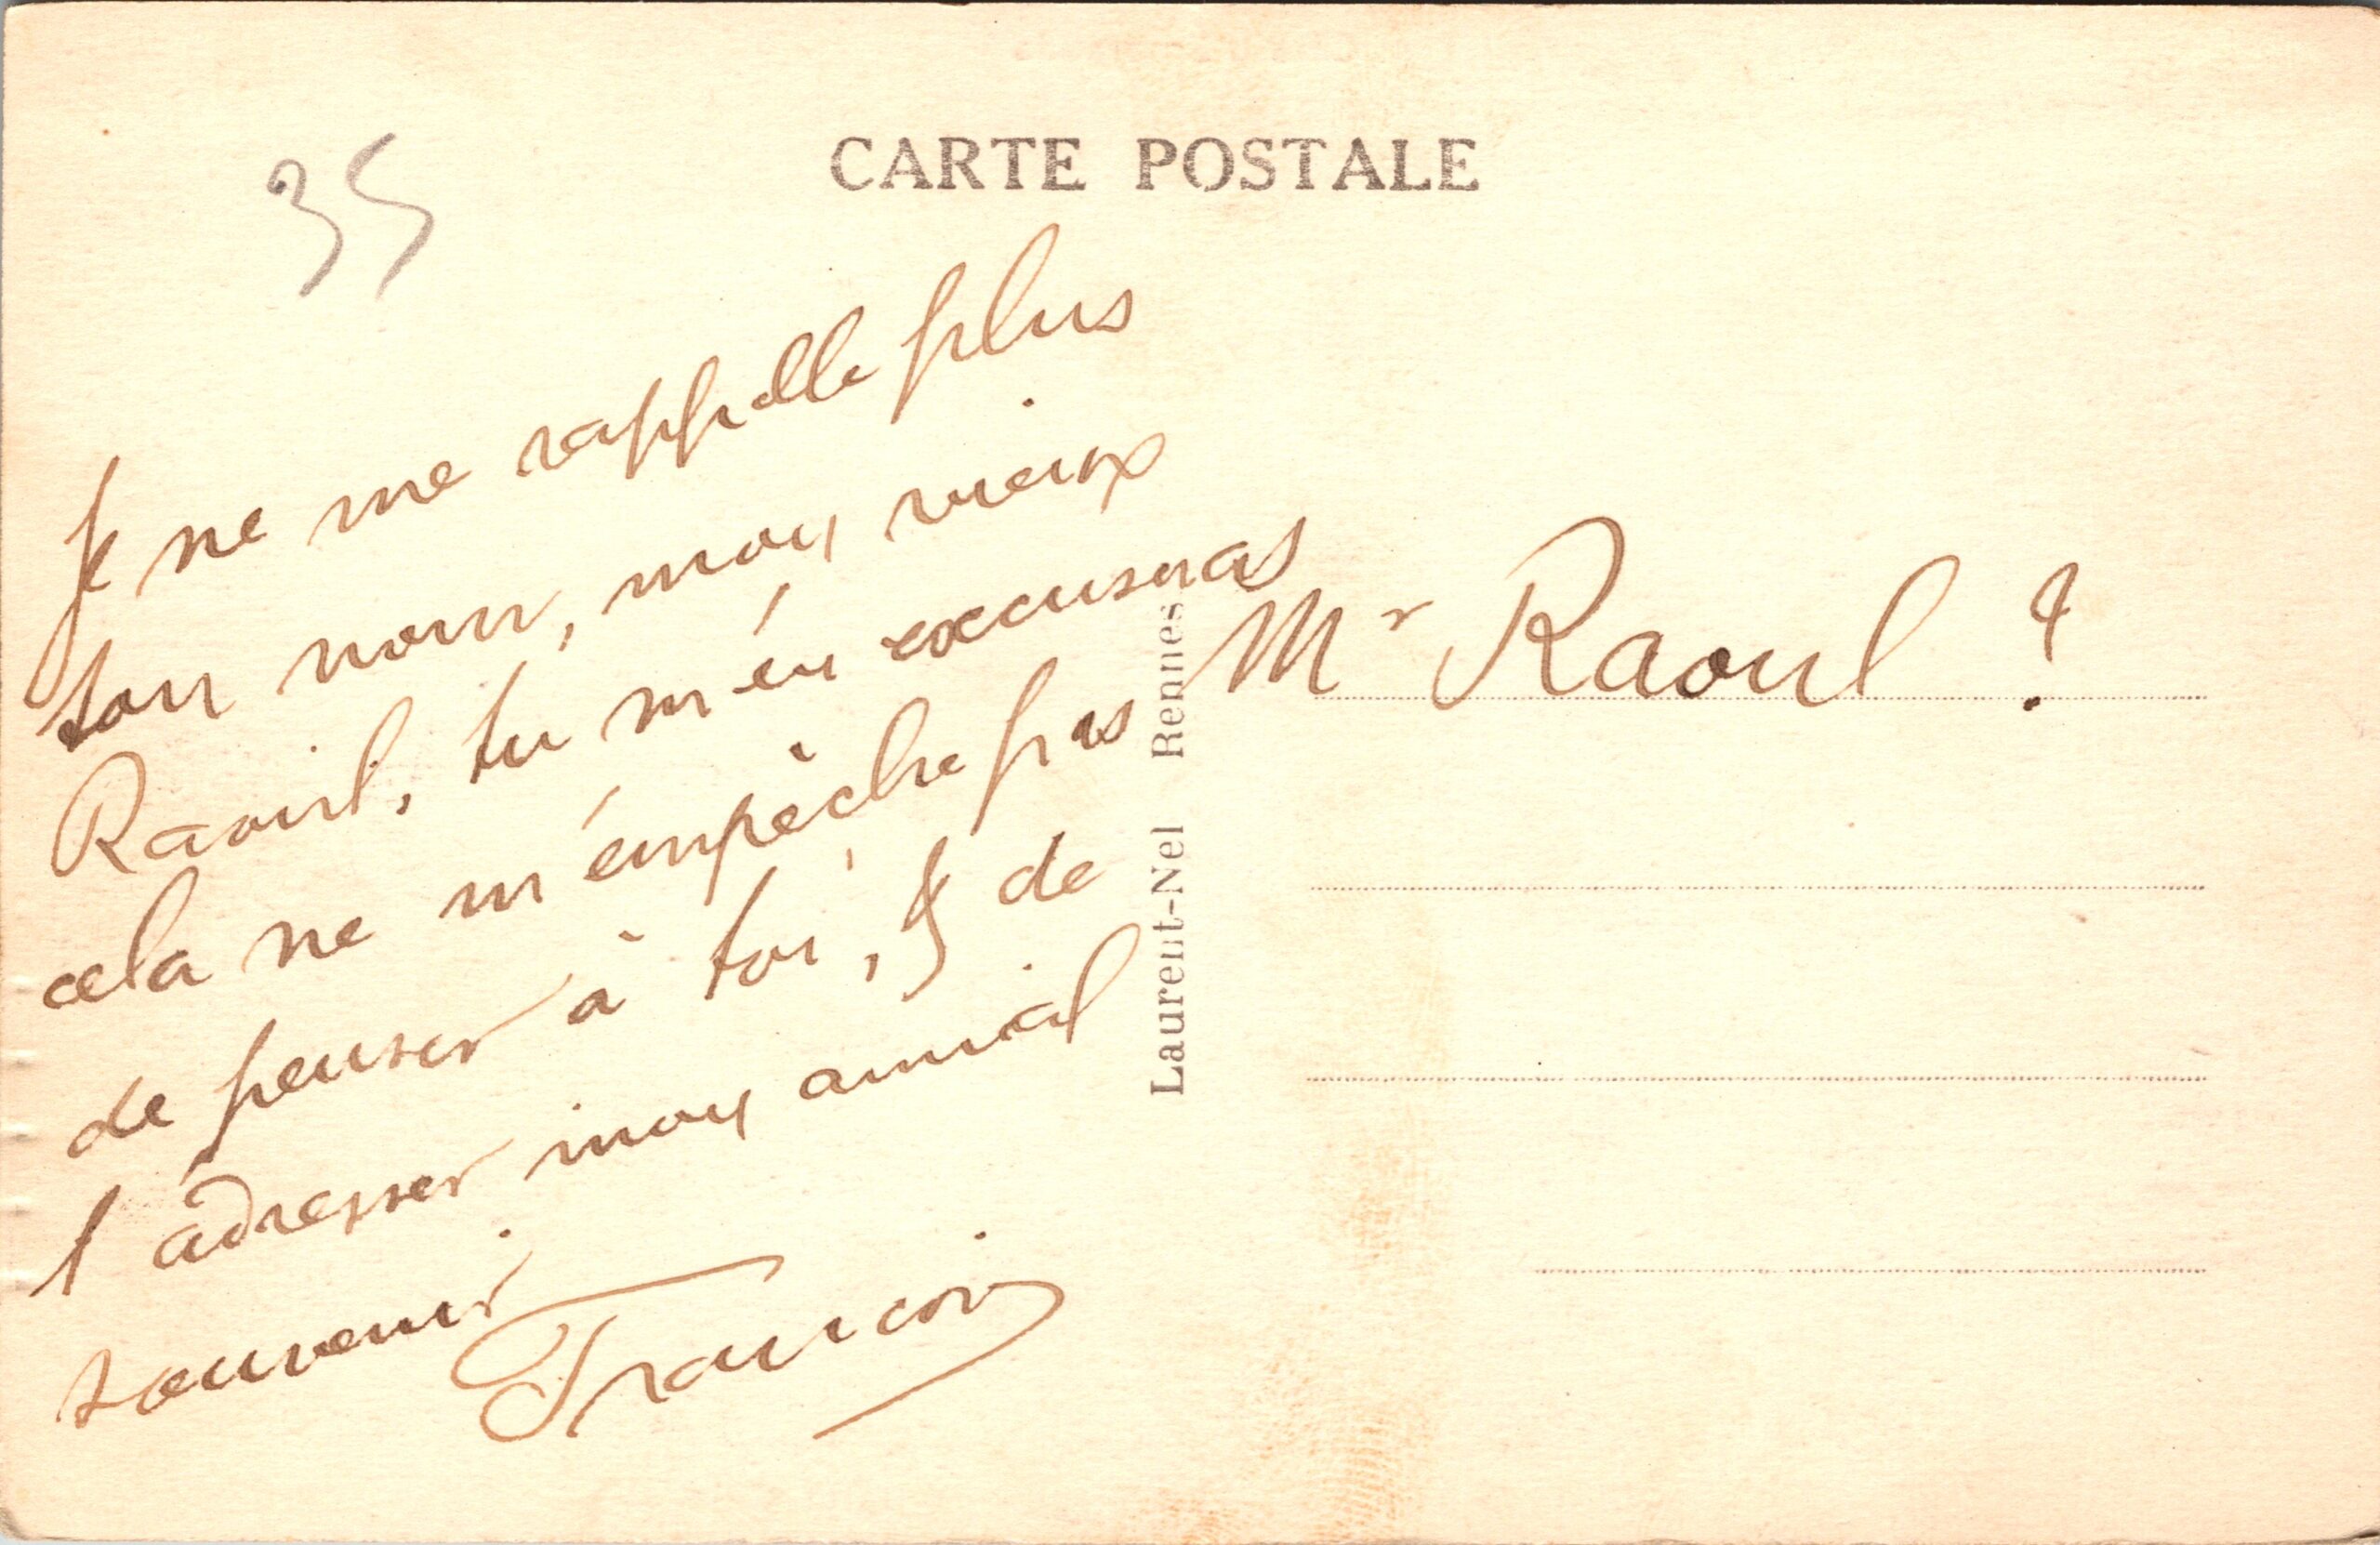 CARTE POSTALE
35
Je ne me rappelle plus
ton nom, mon vieux
Raoul, tu m'en excuseras
cela ne m'empêche pas
de penser à toi, & de
t'adresser mon amical
souvenir
François
Mr Raoul ?
Laurent-Nel Rennes